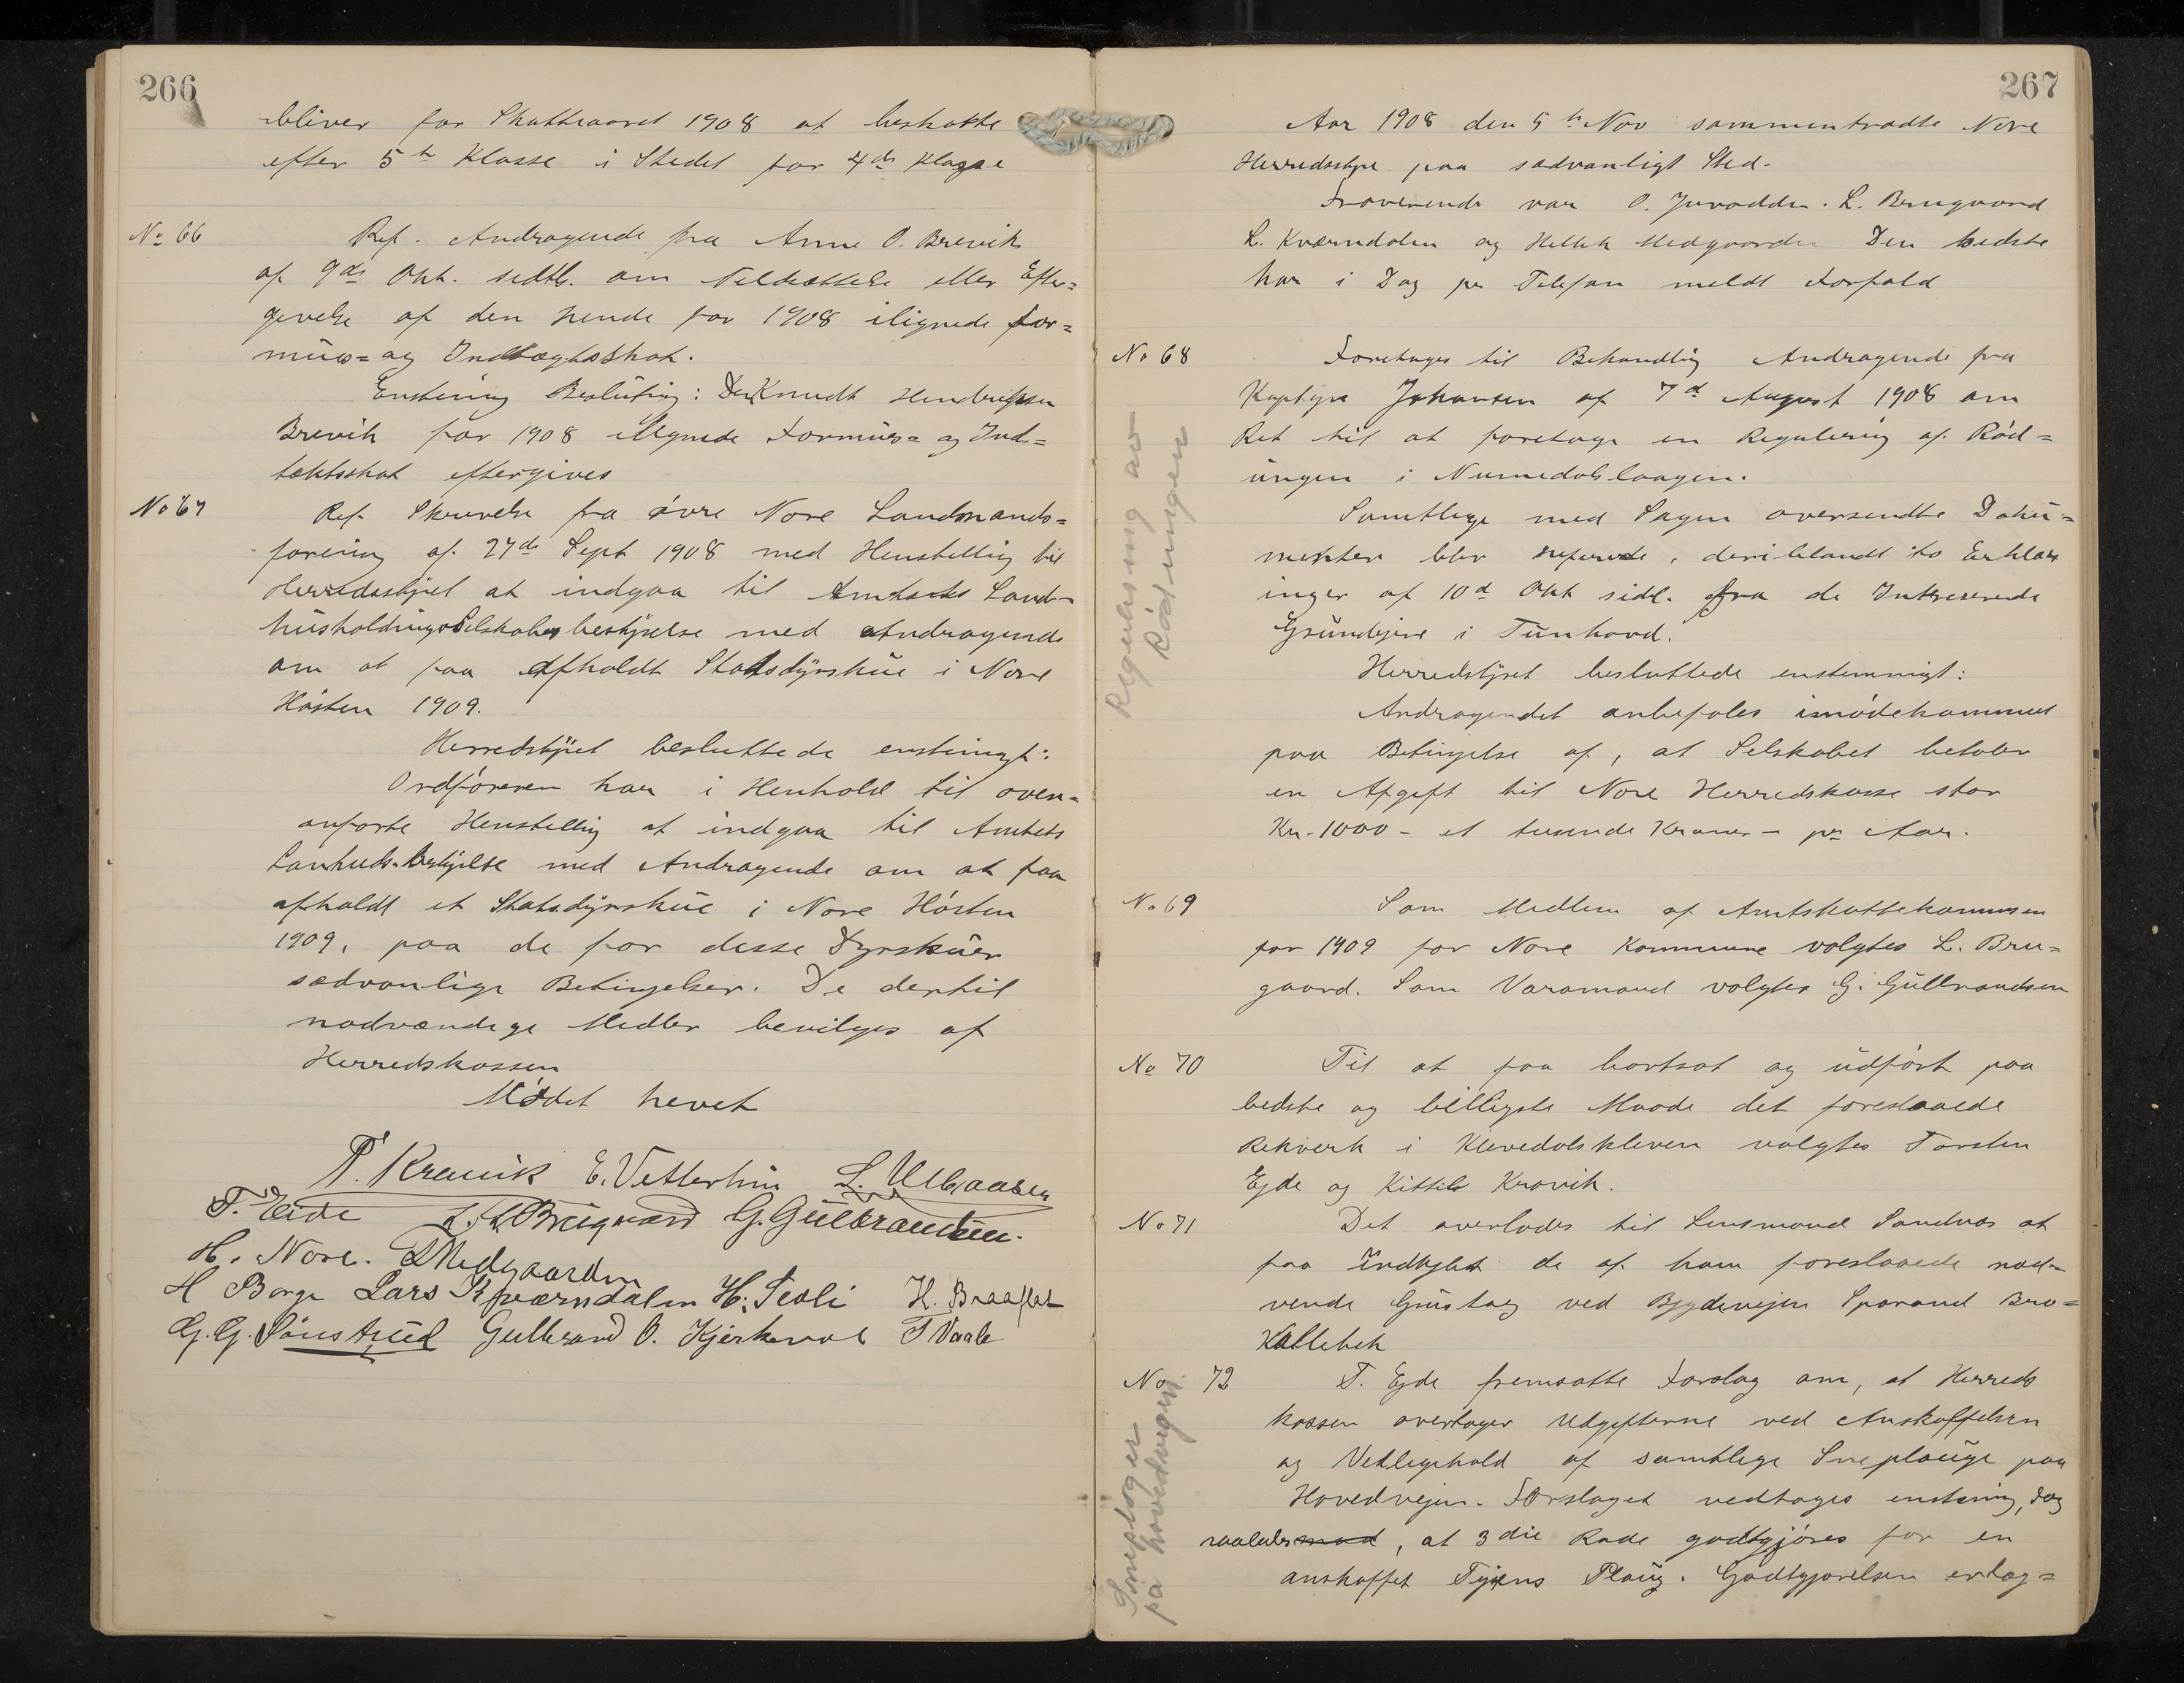 266
bliver for Skatteaaret 1908 at beskatte
efter 5te Klasse i Stedet for 4de Klasse
No 66
Ref. Andragende fra Anne O. Brevik
af 9de Okt. sidtl. om Nedsættelse eller Efter=
givelse af den hende for 1908 ilignede for=
mues= og Indtægtsskat.
Enstemig Beslutnig: Den Knudt Hendriksen
Brevik for 1908 ilignede Formues= og Ind=
tektsskat eftergives
No 67
Ref. Skrivelse fra øvre Nore Landmands=
forening af 27de Sept 1908 med Henstelling til
Herredsstyret at indgaa til Amtets Land=
husholdningsSelskabs bestyrelse med Andragende
om at faa Afholdt Statsdyrskue i Nore
Høsten 1909.
Herredstyret besluttede enstemigt:
Ordføreren har i Henhold til oven=
anførte Henstellig at indgaa til Amtets
Lanhuds.bestyrelse med Andragende om at faa
afholdt et Statsdyrskue i Nore Høsten
1909, paa de for disse Dyrskuer
sædvanlige Betingelser. De dertil
nødvændige Midler bevilges af
Herredskassen
Mødet hevet
T. Kravik E. Vetterhus L. Ulbraasen
T. Eide L. L. Brugaard G. Gulbrandsen.
H. Nore. Medgaarden
H Borge Lars Kværndalen H. Seoli H. Braaflat
G. G. Sønstrud Gulbrand O. Kjerkevol T Vaale
267
Aar 1908 den 5te Nov sammentraadte Nore
Herredsstyre paa sædvanligt Sted.
Fraværende var O. Juvodden. L. Brugaard
L. Kværndalen og Hellik Medgaarden Den sidste
har i Dag pr Telefon meldt Forfald
No 68
Regulering av
Rødungen
Foretages til Behandlig Andragende fra
Kaptejn Johansen af 7de August 1908 om
Ret til at foretage en Regulering af Rød=
ungen i Numedalslaagen.
Samtlige med Sagen oversendte Doku=
menter blev refererede, deriblandt to Erklær
inger af 10de Okt sidl. fra de Intreserede
Grundejere i Tunhovd.
Herredstyret besluttede enstemmigt:
Andragendet anbefales imødekommet
paa Betingelse af, at Selskabet betaler
en Afgift til Nore Herredskasse stor
Kr. 1000 - et tusende Kroner - pr Aar.
No 69
Som Medlem af Amtskattekommisen
for 1909 for Nore Kommune valgtes L. Bru=
gaard. Som Varamand valgtes G. Gulbrandsen
No 70
Til at faa bortsat og udført paa
bedste og billigste Maade det foreslaaede
Rekverk i Klevedalskleven valgtes Torsten
Ejde og Kittil Kravik.
No 71
Det overlodes til Lensmand Sandnæs at
faa indkjøbt de af ham foreslaaede nød=
vende Grustag ved Bygdevejen Sporand Bro=
Kallebek
No 72
Sneploger
på hovedvegen.
T. Ejde fremsatte Forslag om, at Herreds
kassen overtager Udgifterne ved Anskaffelsen
og Vedligehold af samtlige Sneplouge paa
Hovedvejen. Forslaget vedtages enstemig, dog
saaledes mod, at 3die Rode godtgjøres for en
anskaffet Tyiens Ploug. Godtgjørelsen ertag=